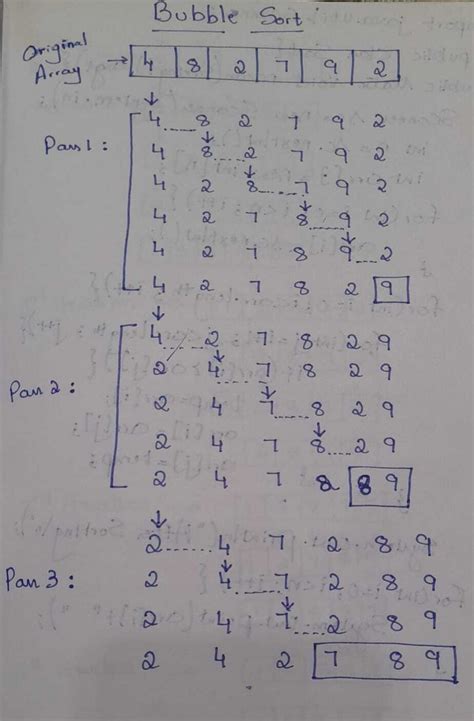 Bubble Sort
Original Array → 4 8 2 7 9 2
Pass 1 :
4 8 2 7 9 2
4 8 2 7 9 2
4 2 8 7 9 2
4 2 7 8 9 2
4 2 7 8 9 2
4 2 7 8 2 9
Pass 2 :
4 2 7 8 2 9
2 4 7 8 2 9
2 4 7 8 2 9
2 4 7 8 2 9
2 4 7 2 8 9
Pass 3 :
2 4 7 2 8 9
2 4 7 2 8 9
2 4 7 2 8 9
2 4 2 7 8 9